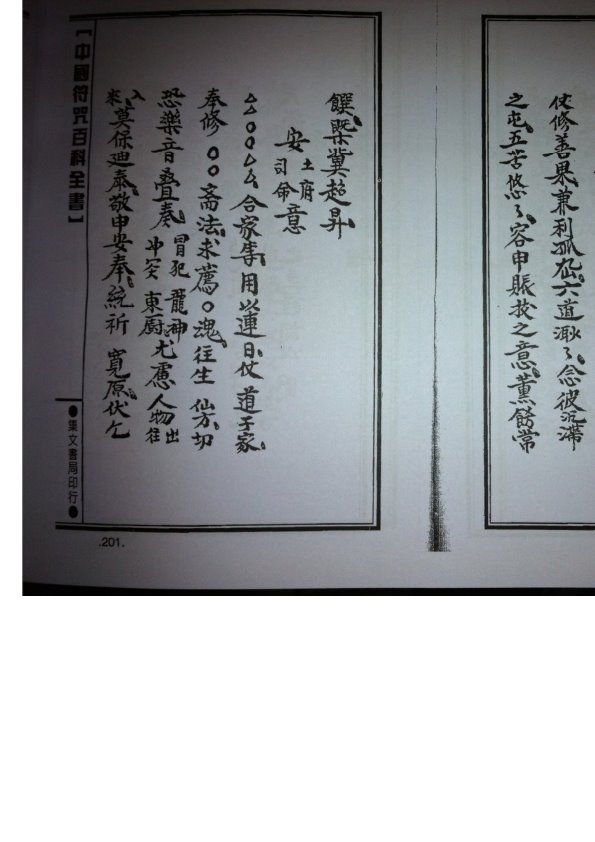 仗修善果、兼利孤魂、六道溺、念彼沉滯
之屯、五苦悠、容申賑拔之意、薰餚常
饌、槩冀超昇、
安土府司命意
△○○△△合家等、用以連日、仗道于家、
奉修○○齋法、求薦○魂、往生仙方、切
恐樂音疊奏冒犯龍神冲突東廚、尤慮人物出
入往來、莫保迪泰、敬申安奉、統祈寬原、伏乞
【中國符咒百科全書】
●集文書局印行●
.201.